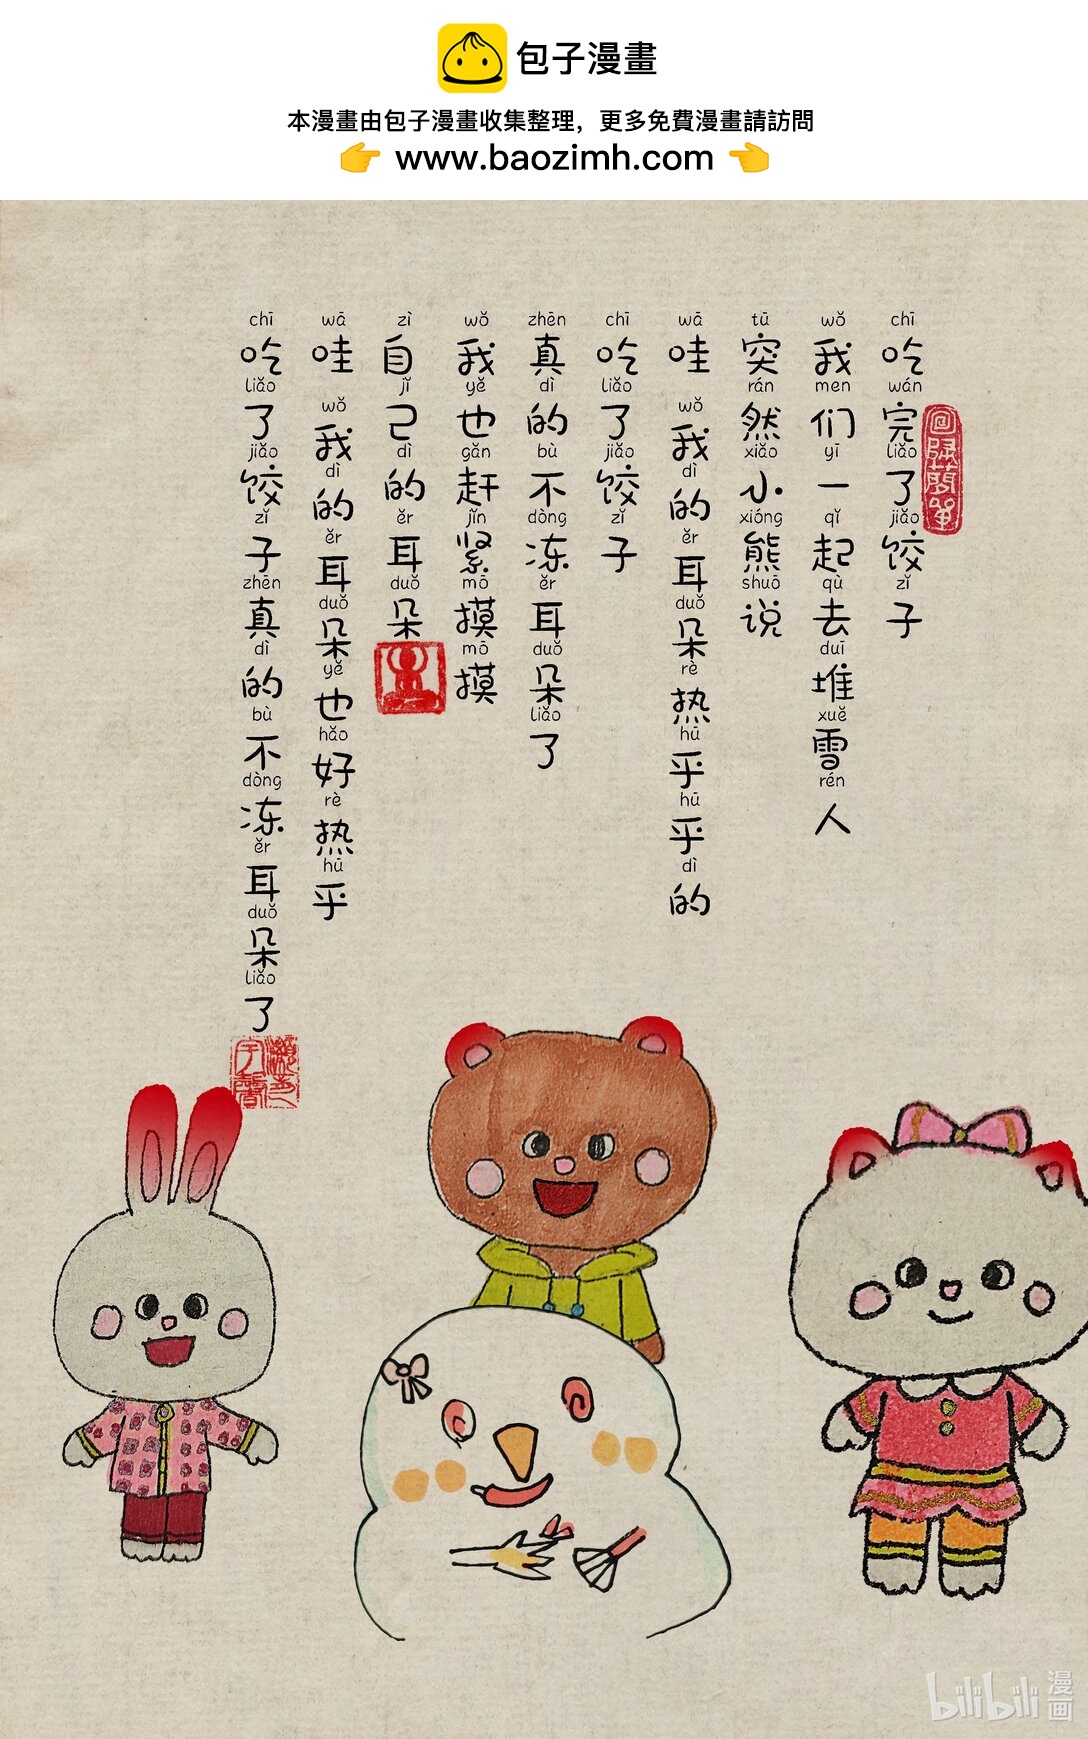 包子漫畫
本漫畫由包子漫畫收集整理，更多免費漫畫請訪問
👉 www.baozimh.com 👈
chī wán liǎo jiǎo zǐ
吃完了饺子
wǒ men yī qǐ qù duī xuě rén
我们一起去堆雪人
tū rán xiǎo xióng shuō
突然小熊说
wā wǒ dì ěr duǒ rè hū hū dì
哇 我的耳朵热乎乎的
chī liǎo jiǎo zǐ
吃了饺子
zhēn dì bù dòng ěr duǒ liǎo
真的不冻耳朵了
wǒ yě gǎn jǐn mō mō
我也赶紧摸摸
zì jǐ dì ěr duǒ
自己的耳朵
wā wǒ dì ěr duǒ yě hǎo rè hū
哇 我的耳朵也好热乎
chī liǎo jiǎo zǐ zhēn dì bù dòng ěr duǒ liǎo
吃了饺子真的不冻耳朵了
bilibili 漫画